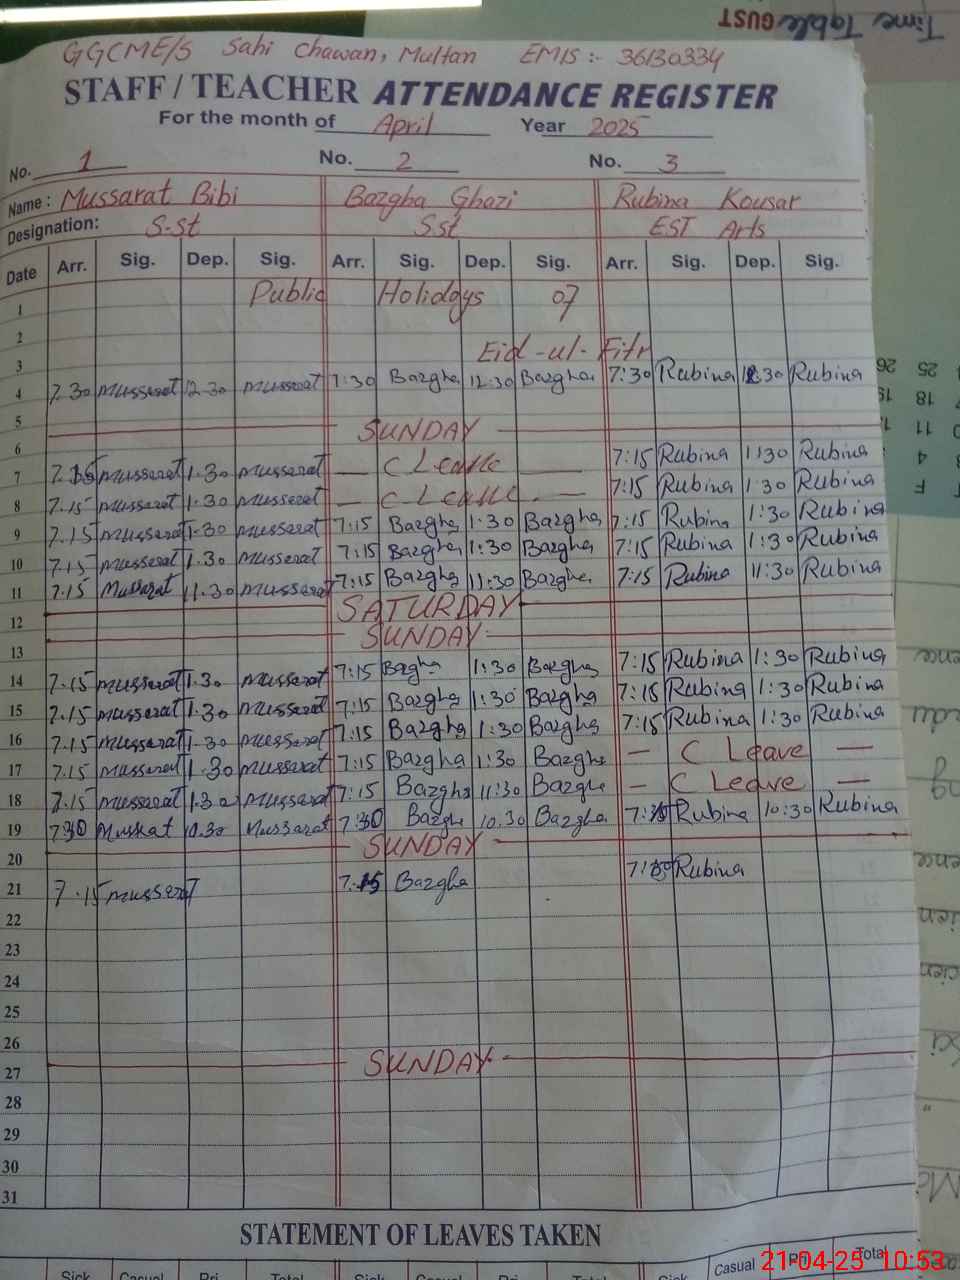 Time Table GUST
GGCME/S Sahi Chawan, Multan EMIS:- 36130334
STAFF / TEACHER ATTENDANCE REGISTER
For the month of April Year 2025
No. 1 No. 2 No. 3
Name: Mussarat Bibi Bazgha Ghazi Rubina Kousar
Designation: S-St S.St EST Arts
Date Arr. Sig. Dep. Sig. Arr. Sig. Dep. Sig. Arr. Sig. Dep. Sig.
1 Public Holidays 07
2
3 Eid-ul-Fitr
4 7.30 Mussarat 12.30 Mussarat 7:30 Bazgha 12:30 Bazgha 7:30 Rubina 12:30 Rubina
5
6 SUNDAY
7 7.15 Mussarat 1.30 Mussarat — C Leave — 7:15 Rubina 1:30 Rubina
8 7.15 Mussarat 1.30 Mussarat — C Leave — 7:15 Rubina 1:30 Rubina
9 7.15 Mussarat 1.30 Mussarat 7:15 Bazgha 1:30 Bazgha 7:15 Rubina 1:30 Rubina
10 7.15 Mussarat 1.30 Mussarat 7:15 Bazgha 1:30 Bazgha 7:15 Rubina 1:30 Rubina
11 7.15 Mussarat 11.30 Mussarat 7:15 Bazgha 11:30 Bazgha 7:15 Rubina 11:30 Rubina
12 SATURDAY
13 SUNDAY
14 7.15 Mussarat 1.30 Mussarat 7:15 Bazgha 1:30 Bazgha 7:15 Rubina 1:30 Rubina
15 7.15 Mussarat 1.30 Mussarat 7:15 Bazgha 1:30 Bazgha 7:15 Rubina 1:30 Rubina
16 7.15 Mussarat 1.30 Mussarat 7:15 Bazgha 1:30 Bazgha 7:15 Rubina 1:30 Rubina
17 7.15 Mussarat 1.30 Mussarat 7:15 Bazgha 1:30 Bazgha — C Leave —
18 7.15 Mussarat 1.30 Mussarat 7:15 Bazgha 11:30 Bazgha — C Leave —
19 7.30 Mussarat 10.30 Mussarat 7:30 Bazgha 10.30 Bazgha Rubina 10:30 Rubina
20 SUNDAY
21 7.15 Mussarat 7.15 Bazgha Rubina
22
23
24
25
26
27 SUNDAY
28
29
30
31
STATEMENT OF LEAVES TAKEN
Sick Casual Pri Total Sick Casual Pri Total Sick Casual Pri Total
21-04-25 10:53